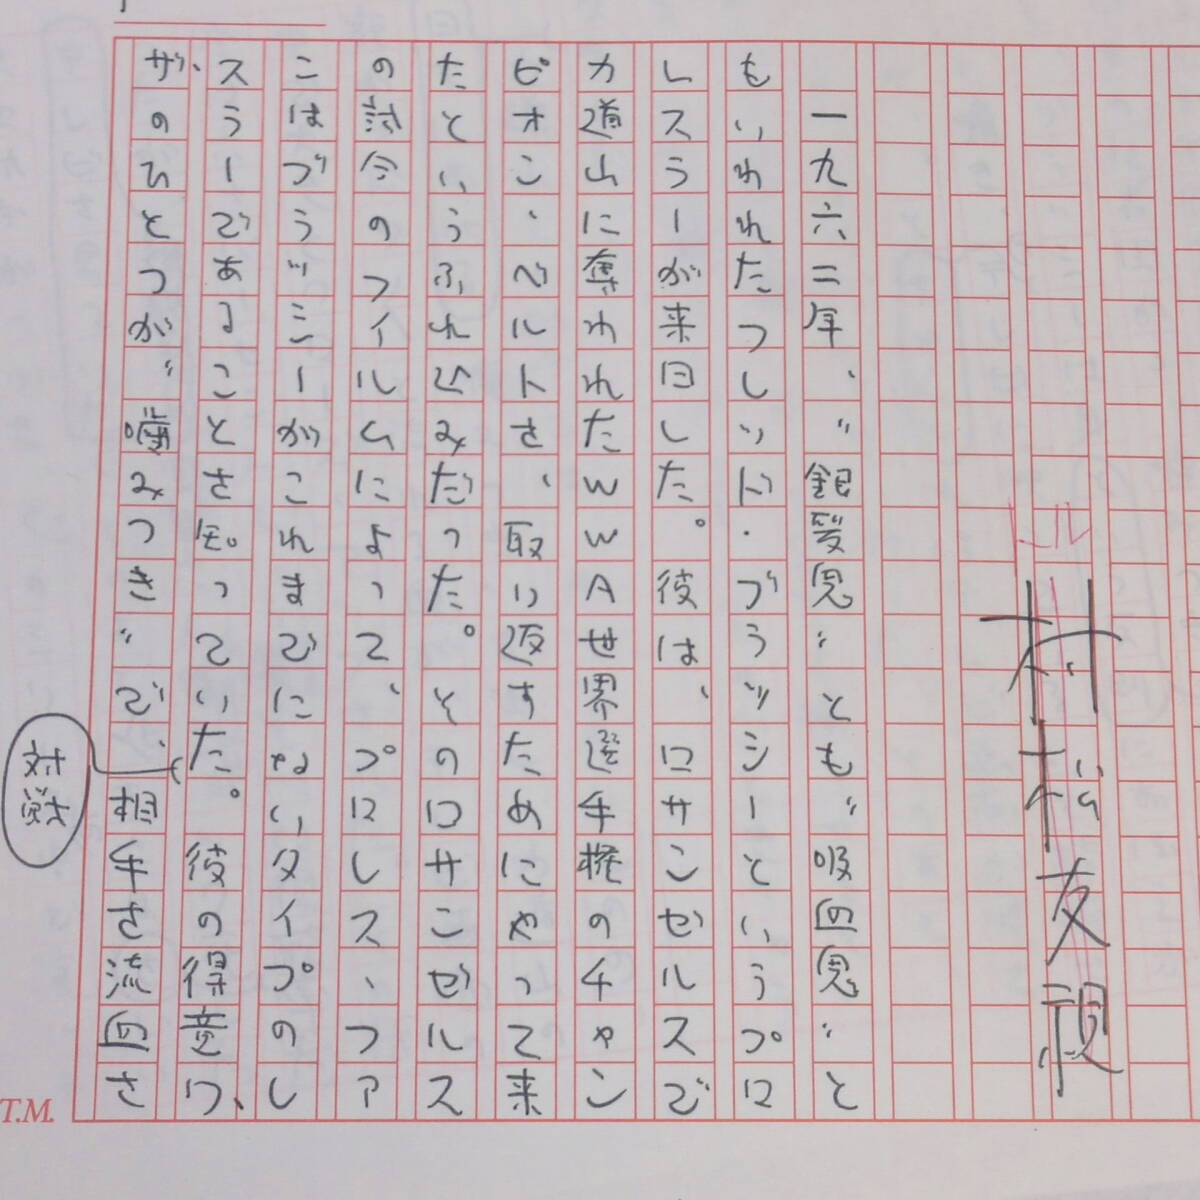 村松友視
一九六二年、〝銀髪鬼〟とも〝吸血鬼〟と
もいわれたフレッド・ブラッシーというプロ
レスラーが来日した。彼は、ロサンゼルスで
力道山に奪われたWWA世界選手権のチャン
ピオン・ベルトを、取り返すためにやって来
たというふれ込みだった。そのロサンゼルス
の試合のフイルムによって、プロレス・ファ
ンはブラッシーがこれまでにないタイプのレ
スラーであることを知っていた。彼の得意ワ
ザのひとつが〝噛みつき〟で、相手を流血さ
対戦
T.M.